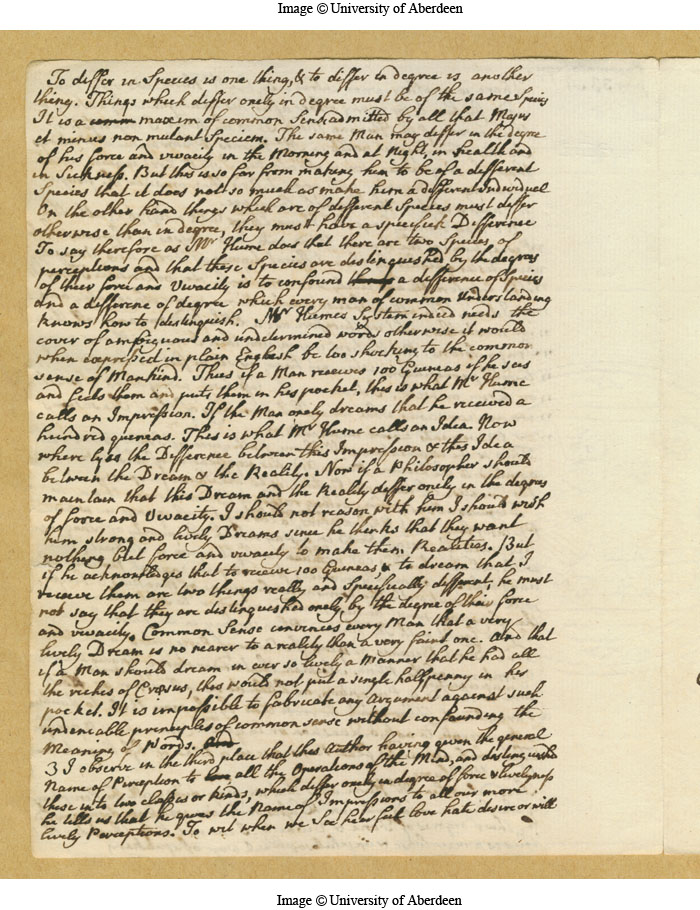 Image © University of Aberdeen
To differ in Species is one thing, & to differ in degree is another
thing. Things which differ onely in degree must be of the same Species
It is a comm maxim of common Sense admitted by all that Majus
et minus non mutant Speciem. The same Man may differ in the degree
of his force and vivacity in the Morning and at Night, in health and
in Sickness. But this is so far from making him to be of a different
Species that it does not so much as make him a different Individual
On the other hand things which are of different Species must differ
otherwise than in degree, they must have a specifick Difference
To say therefore as Mr Hume does that there are two Species of
perceptions and that these Species are distinguished by the degrees
of their force and Vivacity is to confound a difference of Species
and a difference of degree which every man of common Understanding
knows how to distinguish. Mr Humes System indeed needs the
cover of ambiguous and undetermined words otherwise it would
when expressed in plain English be too shocking to the common
sense of Mankind. Thus if a Man receives 100 Guineas if he sees
and feels them and puts them in his pocket, this is what Mr Hume
calls an Impression. If the Man onely dreams that he received a
hundred guineas. This is what Mr Hume calls an Idea. Now
where lyes the Difference between this Impression & this Idea
between the Dream & the Reality. Now if a Philosopher should
maintain that this Dream and the Reality differ onely in the degrees
of force and Vivacity. I should not reason with him I should wish
him strong and lively Dreams since he thinks that they want
nothing but force and vivacity to make them Realities. But
if he acknowledges that to receive 100 Guineas & to dream that I
receive them are two things really and Specifically different, he must
not say that they are distinguished onely by the degree of their force
and vivacity. Common Sense convinces every Man that a very
lively Dream is no nearer to a reality than a very faint one. And that
if a Man should dream in ever so lively a Manner that he had all
the riches of Crœsus, this would not put a single halfpenny in his
pocket. It is impossible to fabricate any Argument against such
undeniable principles of common sense without confounding the
Meaning of Words. And
3 I observe in the third place that this Author having given the general
Name of Perception to all the Operations of the Mind, and distinguished
these into two classes or kinds, which differ onely in degree of force & livelyness
he tells us that he gives the Name of Impressions to all our more
lively Perceptions. To wit when we See hear feel love hate desire or will
Image © University of Aberdeen